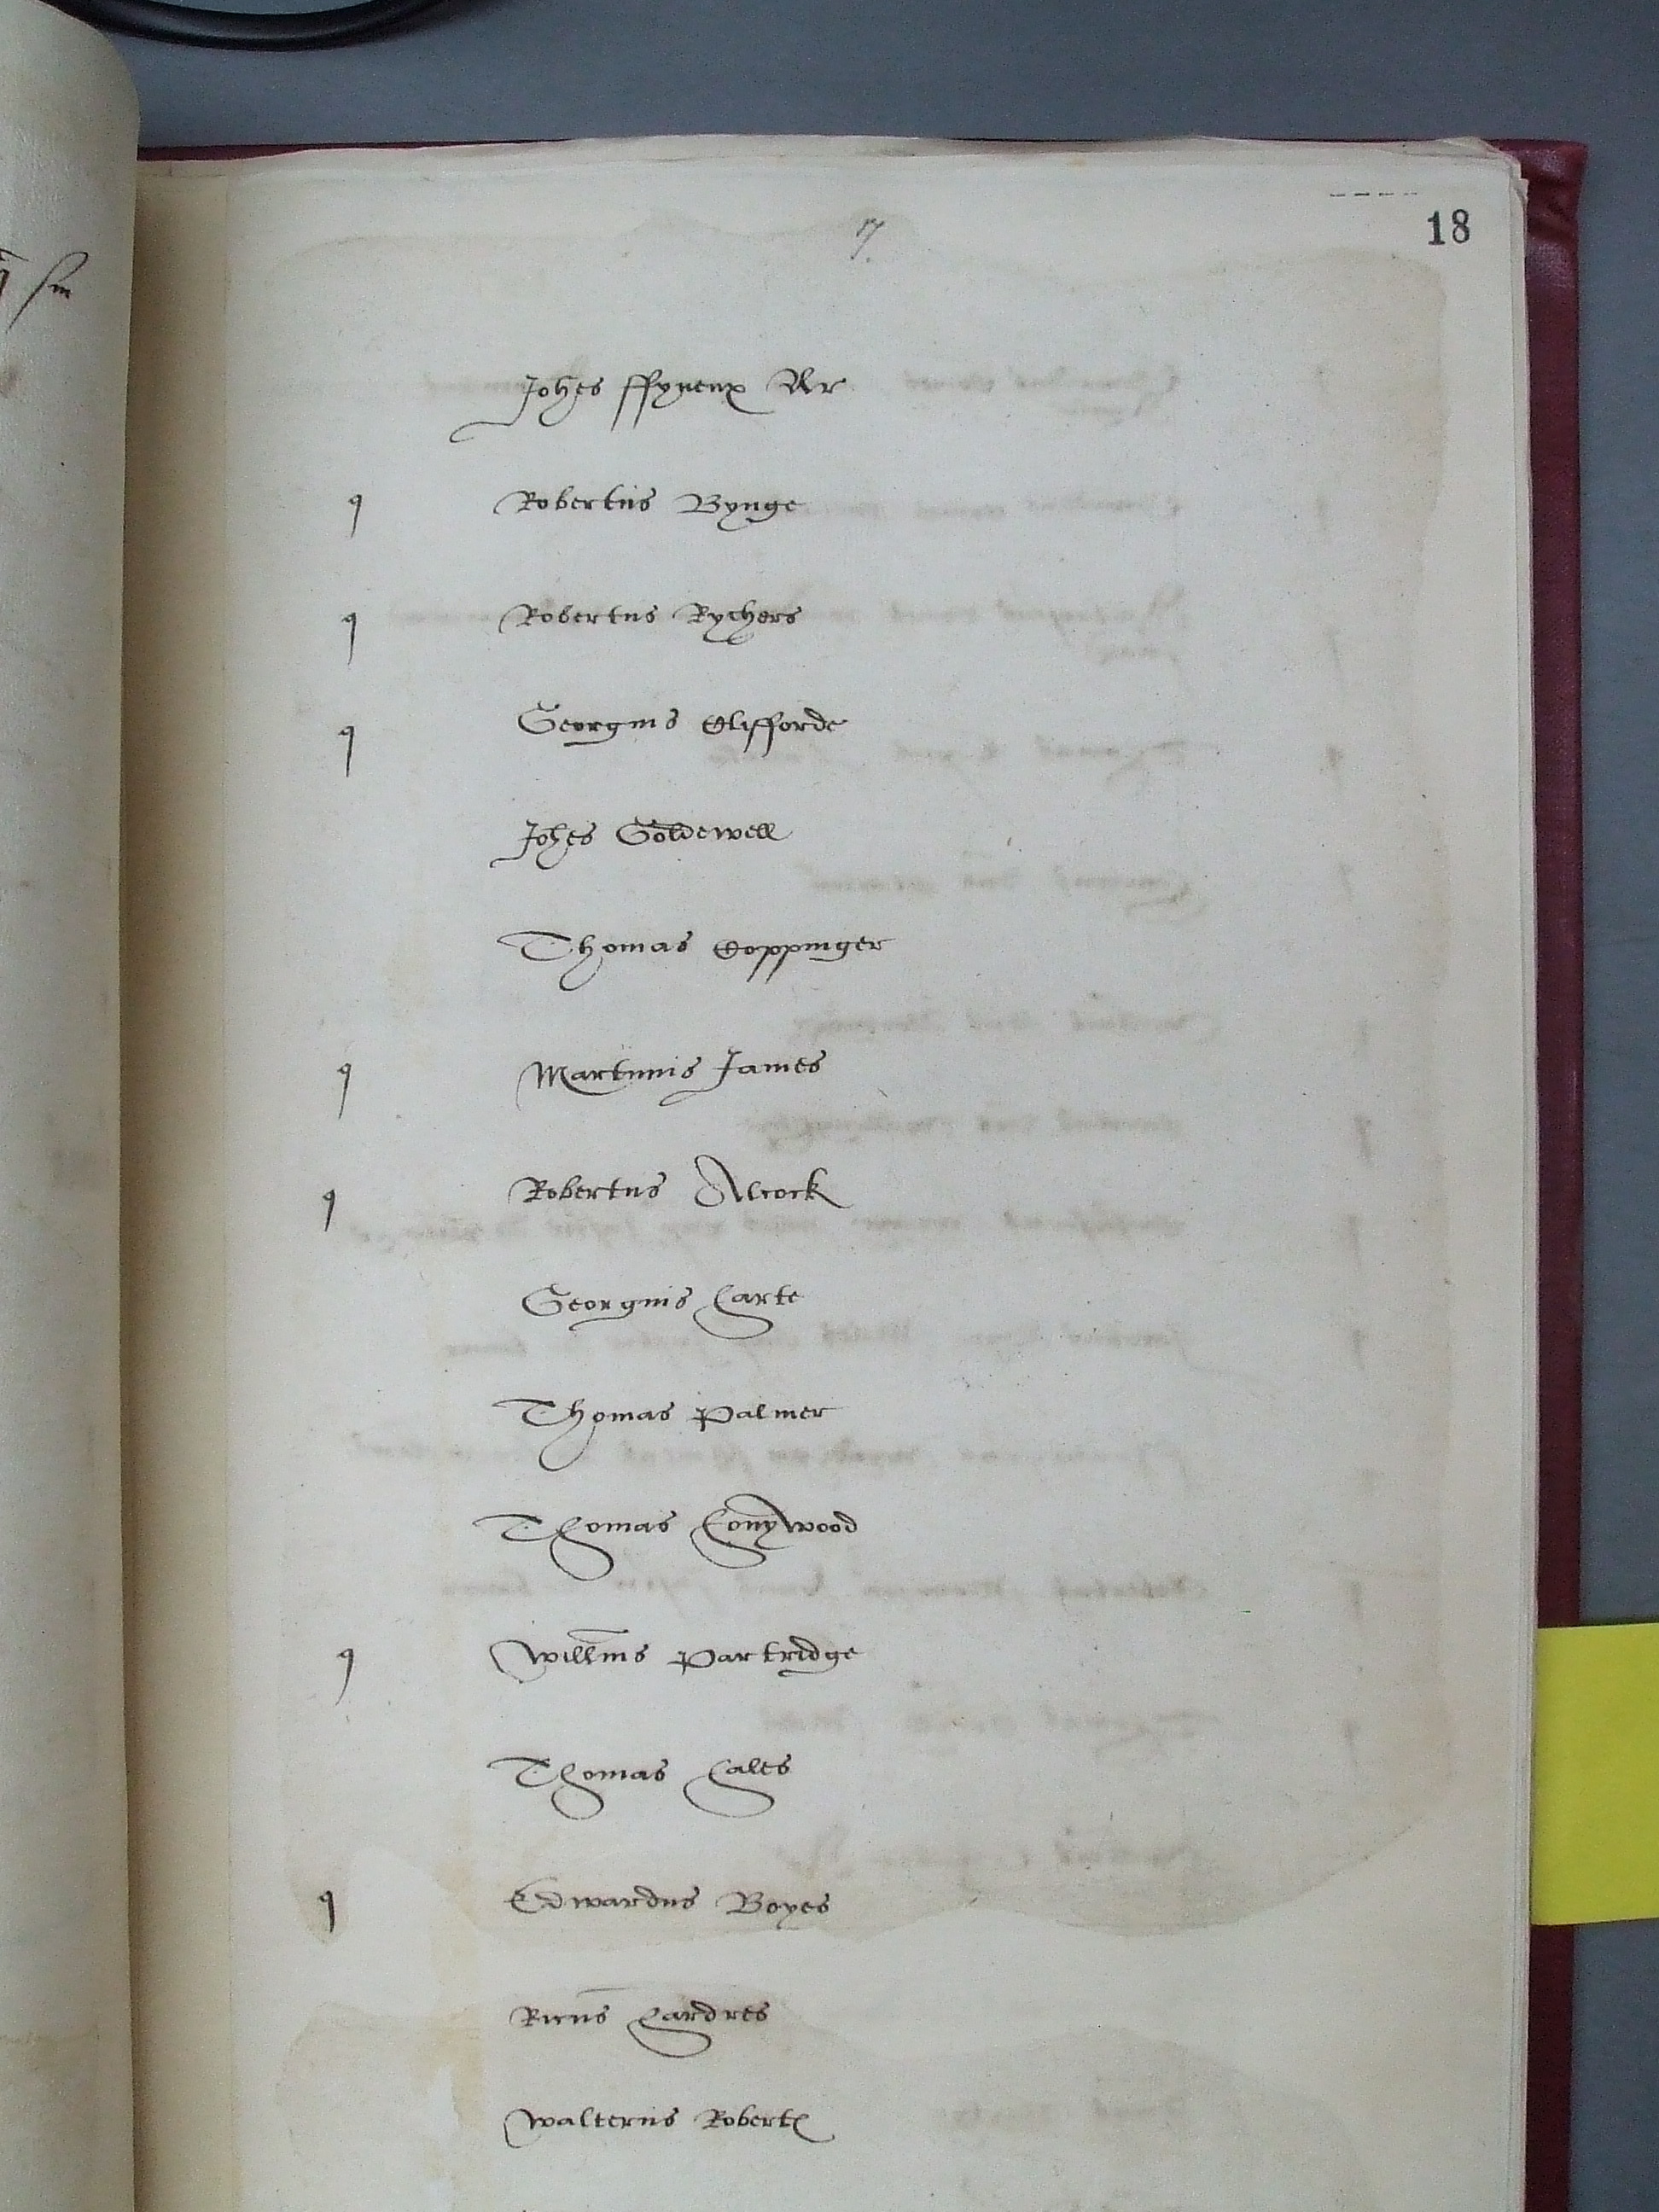 18
7
Johes ffyneux Ar
q Robertus Bynge
q Robertus Rychers
q Georgius Clifforde
Johes Goldewell
Thomas Coppinger
q Martinus James
q Robertus Alcock
Georgius Carte
Thomas Palmer
Thomas Honywood
q Willmus Partridge
Thomas Hales
q Edwardus Boyes
Ricus Hardres
Walterus Roberts